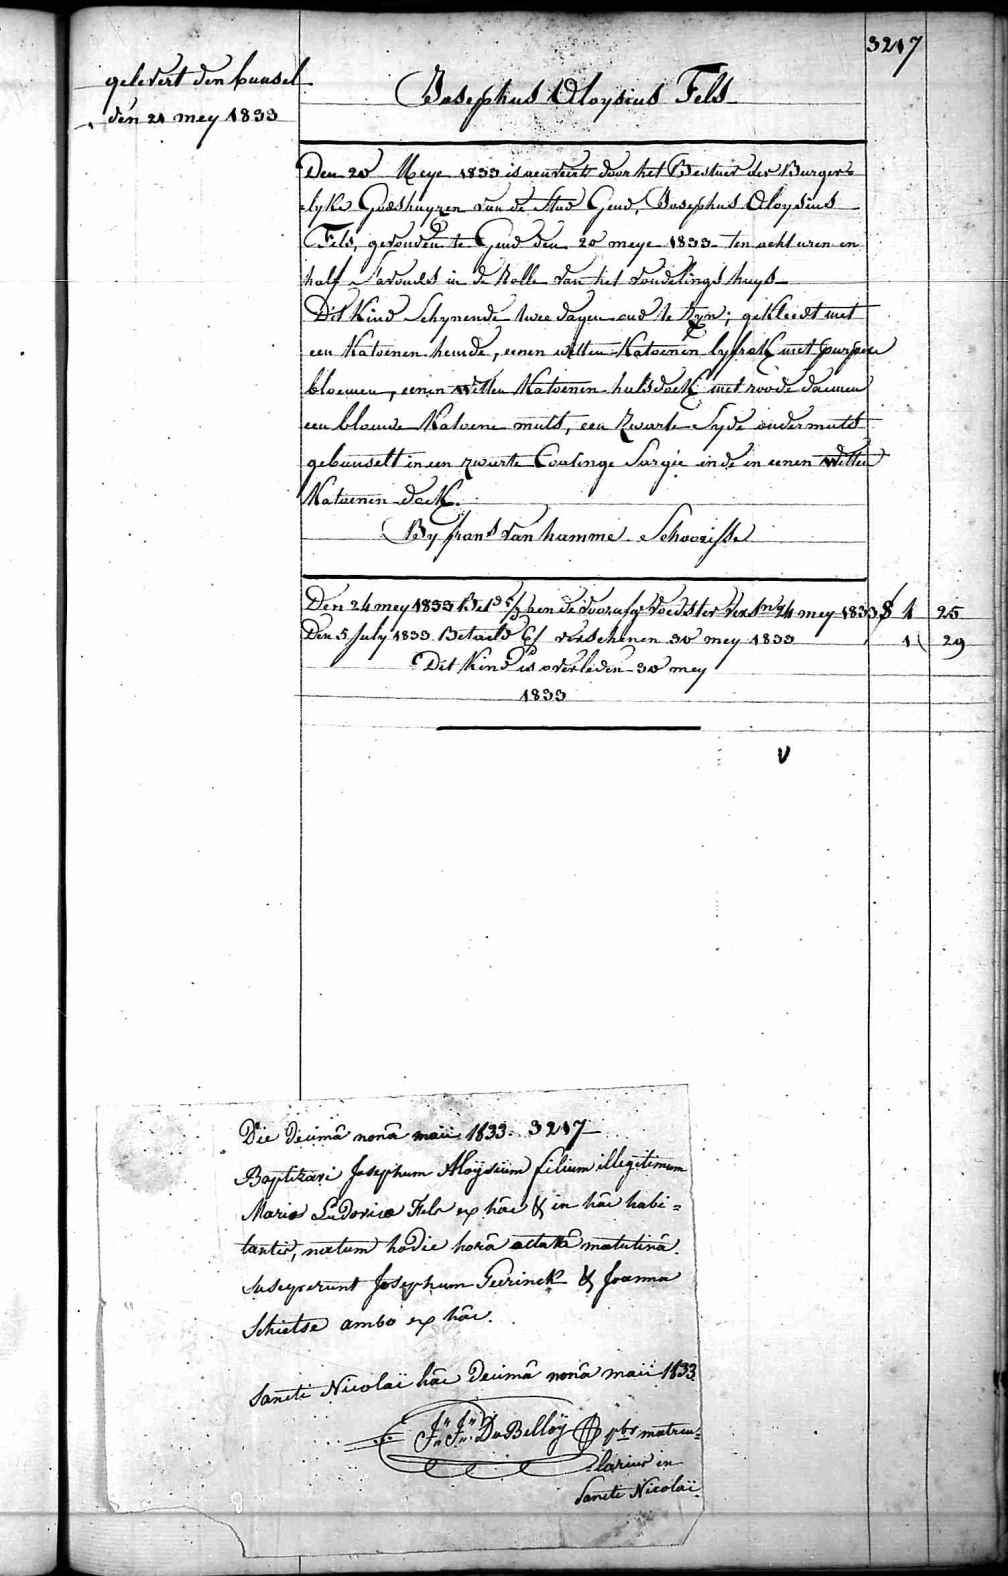 3217
gelevert den bunsel
den 21 mey 1833
Josephus Aloysius Fels
Den 20 Meye 1833 is aenveert door het Bestuer der Burger=
=lyke Godshuyzen van de Stad Gend, Josephus Aloysius
Fels, gevonden te Gend den 20 meye 1833 ten acht uren en
half s'avonds in de Rolle van het vondelings huys
Dit Kind schynende twee dagen oud te Zyn; gekleedt met
een Katoenen hemde, eenen witten Katoenen lyfrok met purpere
bloemen, eenen witten Katoenen halsdoek met roode
een blauwe Katoene muts, een Zwarte Syde ondermuts
gebunselt in een zwarte Sargie ende in eenen witten
Katoenen doek.
By frans van hamme Schoorisse
Den 24 mey 1833 Bet aen de voorafg voedster 24 mey 1833 1 25
Den 5 July 1833 Betaeld verschenen 30 mey 1833 1 29
Dit Kind is overleden 30 mey
1833
V
Die decimâ nonâ maii 1833. 3217
Baptizavi Josephum Aloÿsium filium illegitimum
Mariæ Ludovicæ Fels ex hâc & in hâc habi=
tantis, natum hodie horâ octavâ matutinâ.
Susceperunt Josephum Geerinck & Joanna
Schietse ambo ex hâc.
Sancti Nicolaï hâc decimâ nonâ maii 1833
J. F. De Belloÿ pbr matricu=
=larius in
Sancti Nicolaï